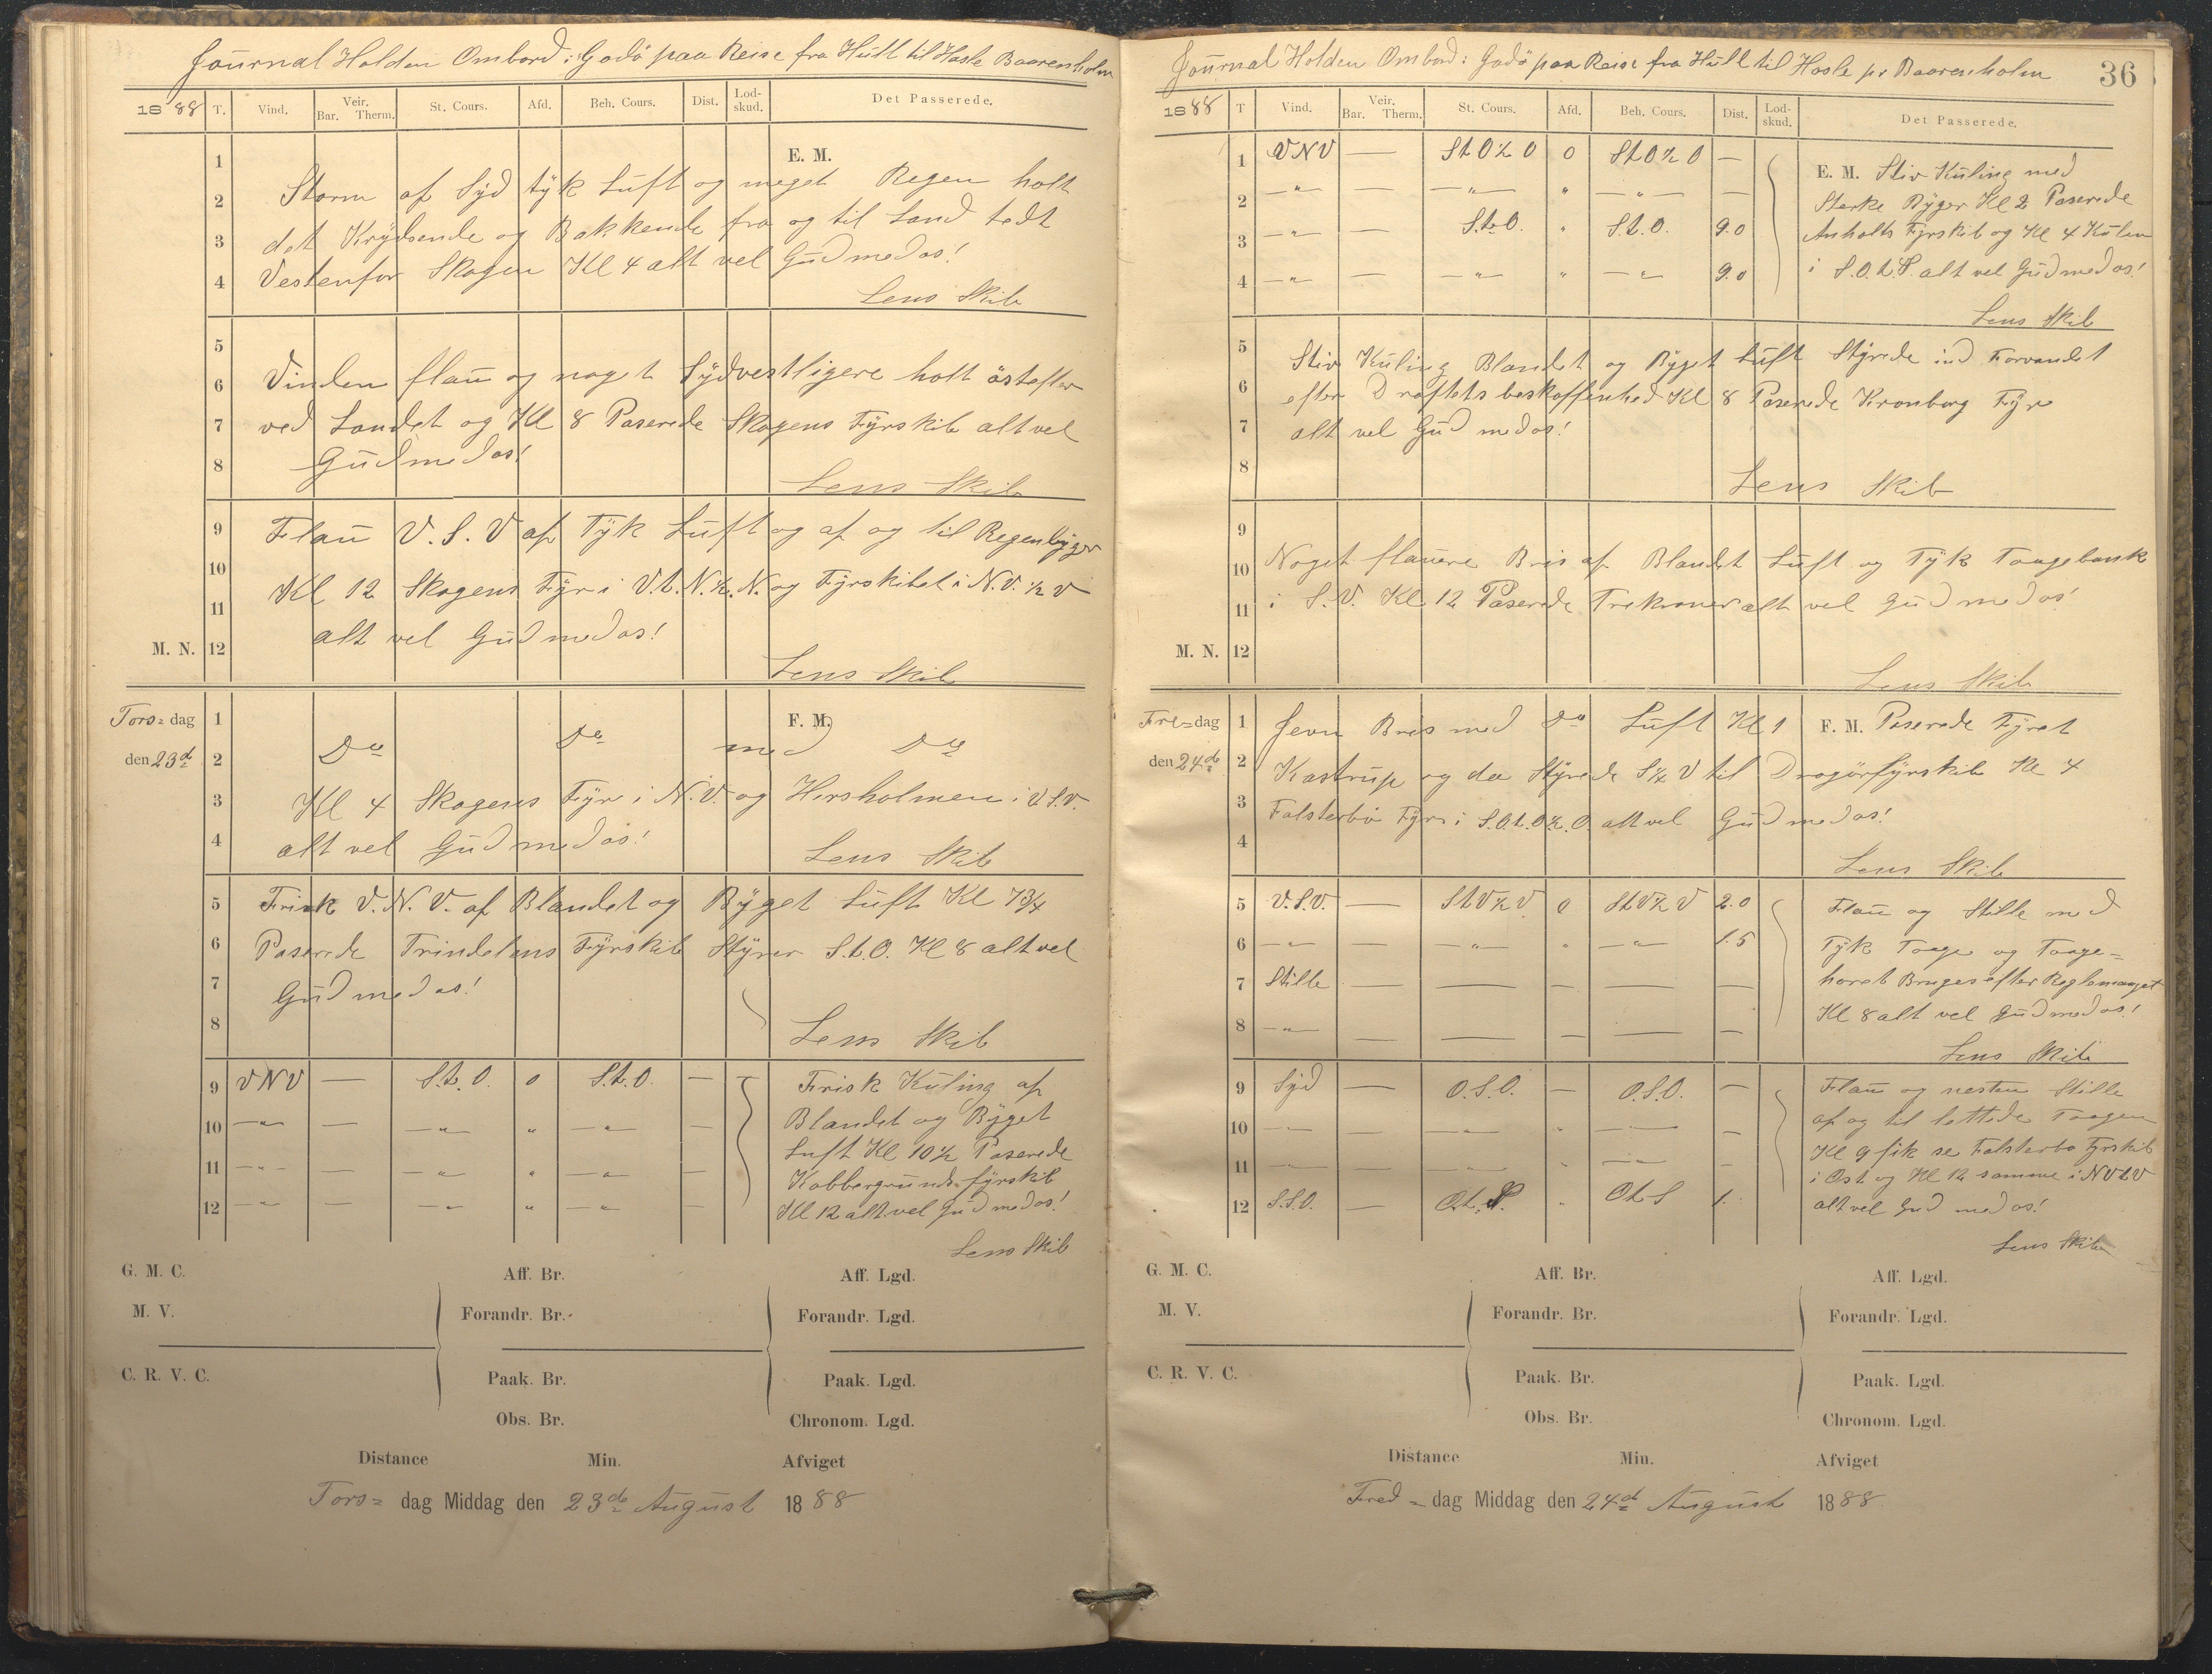 Journal Holden Ombord i Godö paa Reise fra Hull til Hasle Baarenholm
1888 T. Vind. Veir. Bar. Therm. St. Cours. Afd. Beh. Cours. Dist. Lod-skud. Det Passerede.
E. M.
1
2
3
4
Storm af Syd tyk Luft og meget Regen holt
det Krydsende og Bakkende fra og til Land tedt
Vestenfor Skagen Kl 4 alt vel Gud med os!
Lens Skib
5
6
7
8
Vinden flau og noget Sydvestligere holt östefter
ved Landet og Kl 8 Paserede Skagens Fyrskib alt vel
Gud med os!
Lens Skib
9
10
11
M. N. 12
Flau V.S.V af Tyk Luft og af og til Regenbyger
Kl 12 Skagens Fyr i V.t.N.½.N. og Fyrskibet i N.V.½ V
alt vel Gud med os!
Lens Skib
Tors= dag
den 23de
F. M.
1
2
3
4
Do Do med Do
Kl 4 Skagens Fyr i N.V. og Hirsholmen i V.S.V.
alt vel Gud med os!
Lens Skib
5
6
7
8
Frisk V.N.V. af Blandet og Byget Luft Kl 7¾
Paserede Trindelens Fyrskib Styrer S.t.O. Kl 8 alt vel
Gud med os!
Lens Skib
9 VNV — S.t.O. 0 S.t.O. — — Frisk Kuling af
10 —„— — —„— „ —„— — Blandet og Byget
Luft Kl 10½ Paserede
11 —„— — —„— „ —„— — Kobbergrunds-fyrskib
12 —„— — —„— „ —„— — Kl 12 alt vel Gud med os!
Lens Skib
G. M. C. Aff. Br. Aff. Lgd.
M. V. Forandr. Br. Forandr. Lgd.
C. R. V. C. Paak. Br. Paak. Lgd.
Obs. Br. Chronom. Lgd.
Distance Min. Afviget
Tors= dag Middag den 23de August 1888
Journal Holden Ombord i Godö paa Reise fra Hull til Hasle pr Baarenholm 36
1888 T Vind. Veir. Bar. Therm. St. Cours. Afd. Beh. Cours. Dist. Lod-skud. Det Passerede.
1 VNV — StO½O 0 StO½O — E. M. Stiv Kuling med
2 —„— — —„— „ —„— — Sterke Byger Kl 2 Paserede
3 —„— — S.t.O. „ S.t.O. 9.0 Anholts Fyrskib og Kl 4 Kulen
4 —„— — —„— „ —„— 9.0 i S.O.t.S. alt vel Gud med os!
Lens Skib
5
6
7
8
Stiv Kuling Blandet og Byget Luft Styrede ind Forvandet
efter Draftets beskaffenhed Kl 8 Paserede Kronborg Fyr
alt vel Gud med os!
Lens Skib
9
10
11
M. N. 12
Noget flauere Bris af Blandet Luft og Tyk Taagebank
i S.V. Kl 12 Paserede Trekroner alt vel Gud med os!
Lens Skib
Fre= dag
den 24de
1
2
3
4
Jevn Bris med Do Luft Kl 1 F. M. Paserede Fyret
Kastrup og da Styrede S½V til Dragörfyrskib Kl 4
Falsterbo Fyr i S.O.t.O½.O. alt vel Gud med os!
Lens Skib
5 V.S.V. — StV½V 0 StV½V 2.0 Flau og Stille med
6 —„— — —„— „ —„— 1.5 Tyk Taage og Taage=
7 Stille — — — — — hornet Bruges efter Reglemanget
8 —„— — — — — — Kl 8 alt vel Gud med os!
Lens Skib
9 Syd — O.S.O. — O.S.O. — Flau og nesten Stille
10 —„— — —„— „ —„— — af og til lettede Taagen
11 —„— — —„— „ —„— — Kl 9 fik se Falsterbo Fyrskib
i Ost og Kl 12 samme i NVtV
12 S.S.O. — O.t.S. „ OtS 1. alt vel Gud med os!
Lens Skib
G. M. C. Aff. Br. Aff. Lgd.
M. V. Forandr. Br. Forandr. Lgd.
C. R. V. C. Paak. Br. Paak. Lgd.
Obs. Br. Chronom. Lgd.
Distance Min. Afviget
Fred= dag Middag den 24de August 1888